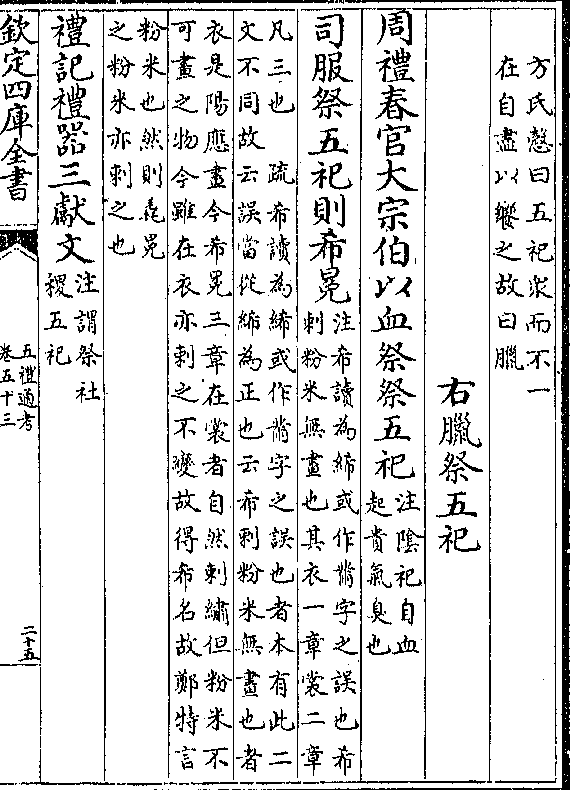 方氏慤曰五祀衆而不一
在自盡以縱之故曰臘
右臘祭五祀
周禮春官大宗伯以血祭祭五祀注陰祀自血
起貴氣臭也
司服祭五祀則希冕注希讀為絺或作黹字之誤也希
刺粉米無畫也其衣一章裳二章
凡三也 疏希讀為絺或作黹字之誤也者本有此二
文不同故云誤當從絺為正也云希刺粉米無畫也者
衣是陽應畫今希冕三章在裳者自然刺繡但粉米不
可畫之物今雖在衣亦刺之不變故得希名故鄭特言
粉米也然則毳冕
之粉米亦刺之也
禮記禮器三獻文注謂祭社
稷五祀
欽定四庫全書
五禮通考
卷五十三
二十五